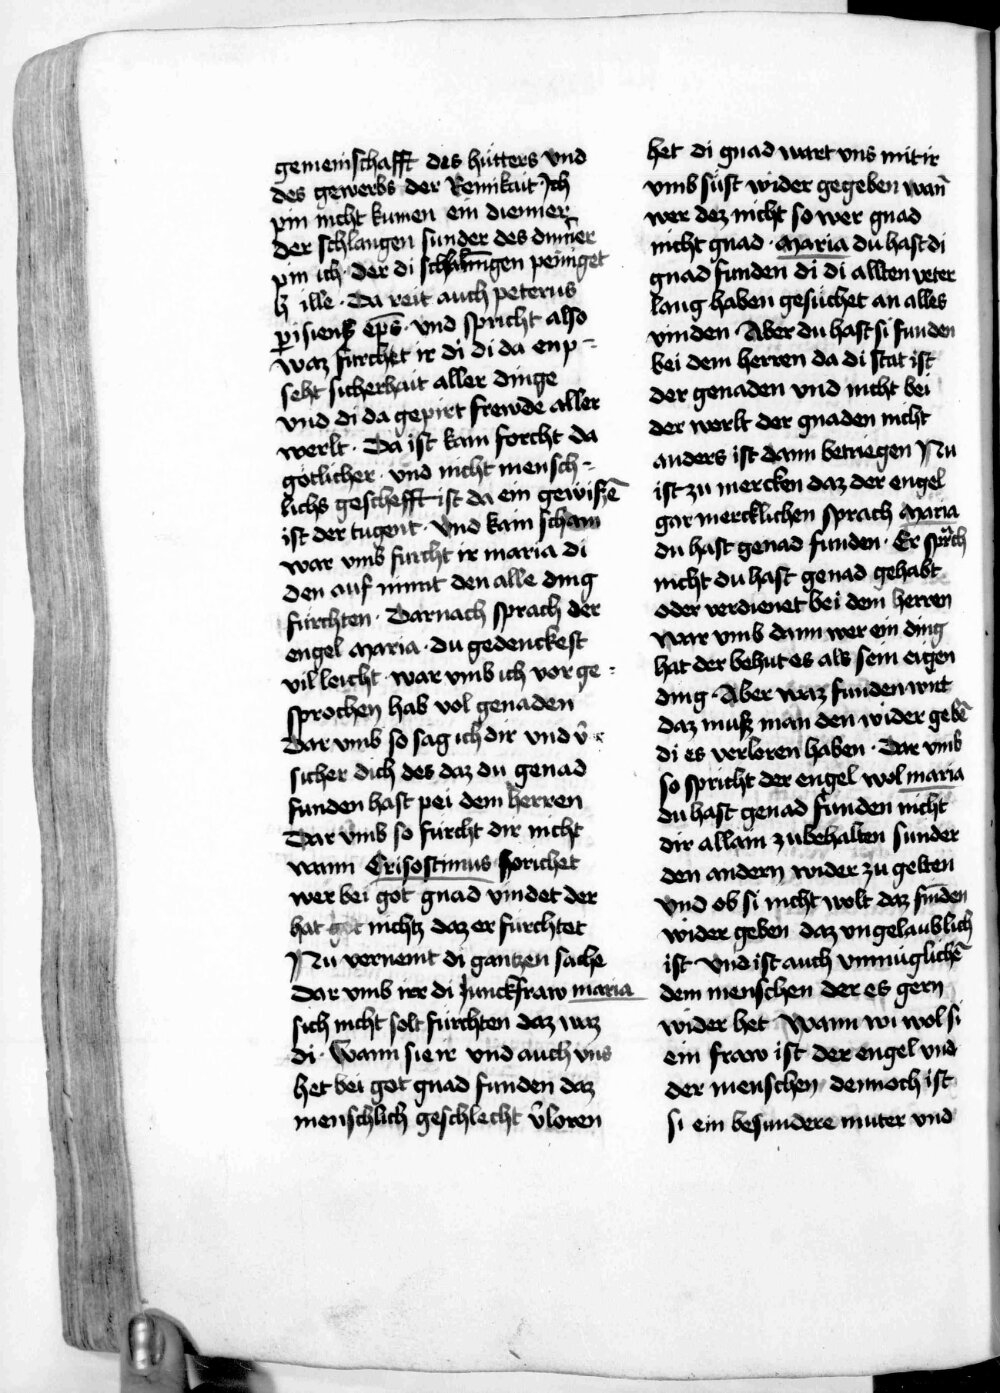 gemeinschafft des hütters vnd
des gewerbs der Reinikait Ich
pin nicht kumen ein diennier
der schlangen sunder des
pin ich · der di schlangen peiniget
ille · Da reit auch peterus
eps̄ · vnd spricht also
waz fürchet ir di di da enp-
seht sicherhait aller dinge
vnd di da gepirt frewde aller
werlt · Da ist kain forcht da
gotlicher · vnd nicht mensch-
lichs geschefft ist da ein gewiszē
ist der tugent · vnd kain scham
war vmb furcht ir maria di
den auf nimt den alle ding
fürchten · Darnach sprach der
engel maria · du gedenckest
villeicht · war vmb ich vor ge-
sprochen hab vol genaden
Dar vmb so sag ich dir vnd v̄
sicher dich des daz du genad
funden hast pei dem herren
Dar vmb so fürcht dir nicht
wann Crisostimus sprichet
wer bei got gnad vindet der
hat got nichtz daz er fürchtet
Nu vernemt di gantzen sache
Dar vmb irr di Junckfraw maria
sich nicht solt fürchten daz waz
di · Wann sie ir vnd auch vns
het bei got gnad funden daz
menschlich geschlecht v̄loren
het di gnad wart vns mit ir
vmb süst wider gegeben wan̄
wer dez nicht so wer gnad
nicht gnad · maria du hast di
gnad funden di di allten veter
lang haben gesüchet an alles
vinden · Aber du hast si funden
bei dem herren da di stat ist
der genaden vnd nicht bei
der werlt der gnaden nicht
anders ist dann betriegen Nu
ist zu mercken daz der engel
gar mercklichen sprach maria
du hast genad funden · Er sprach
nicht du hast genad gehabt
oder verdienet bei dem herren
War vmb dann wer ein ding
hat der behut es als sein eigen
ding · Aber waz funden wirt
daz musz man den wider gebē
di es verloren haben · Dar vmb
so spricht der engel wol maria
du hast genad funden nicht
dir allain zu behalten sunder
den andern wider zu gelten
vnd ob si nicht wolt daz funden
wider geben daz vngelaublich
ist vnd ist auch vnmüglichē
dem menschen der es gern
wider het Wann wi wol si
ein fraw ist der engel vnd
der menschen dennoch ist
si ein besundere muter vnd